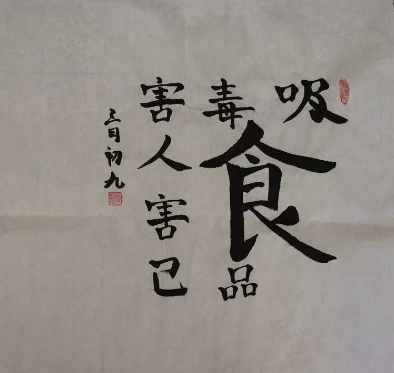 吸食
毒品
害人害己
三月初九